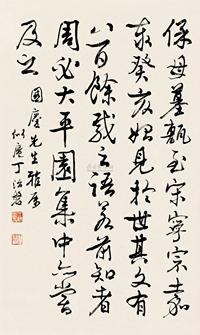 保母墓甎至宋寧宗嘉
泰癸亥始見於世其文有
八百餘載之語若前知者
周必大平園集中亦嘗
及之
國慶先生雅屬
似庵丁治磐